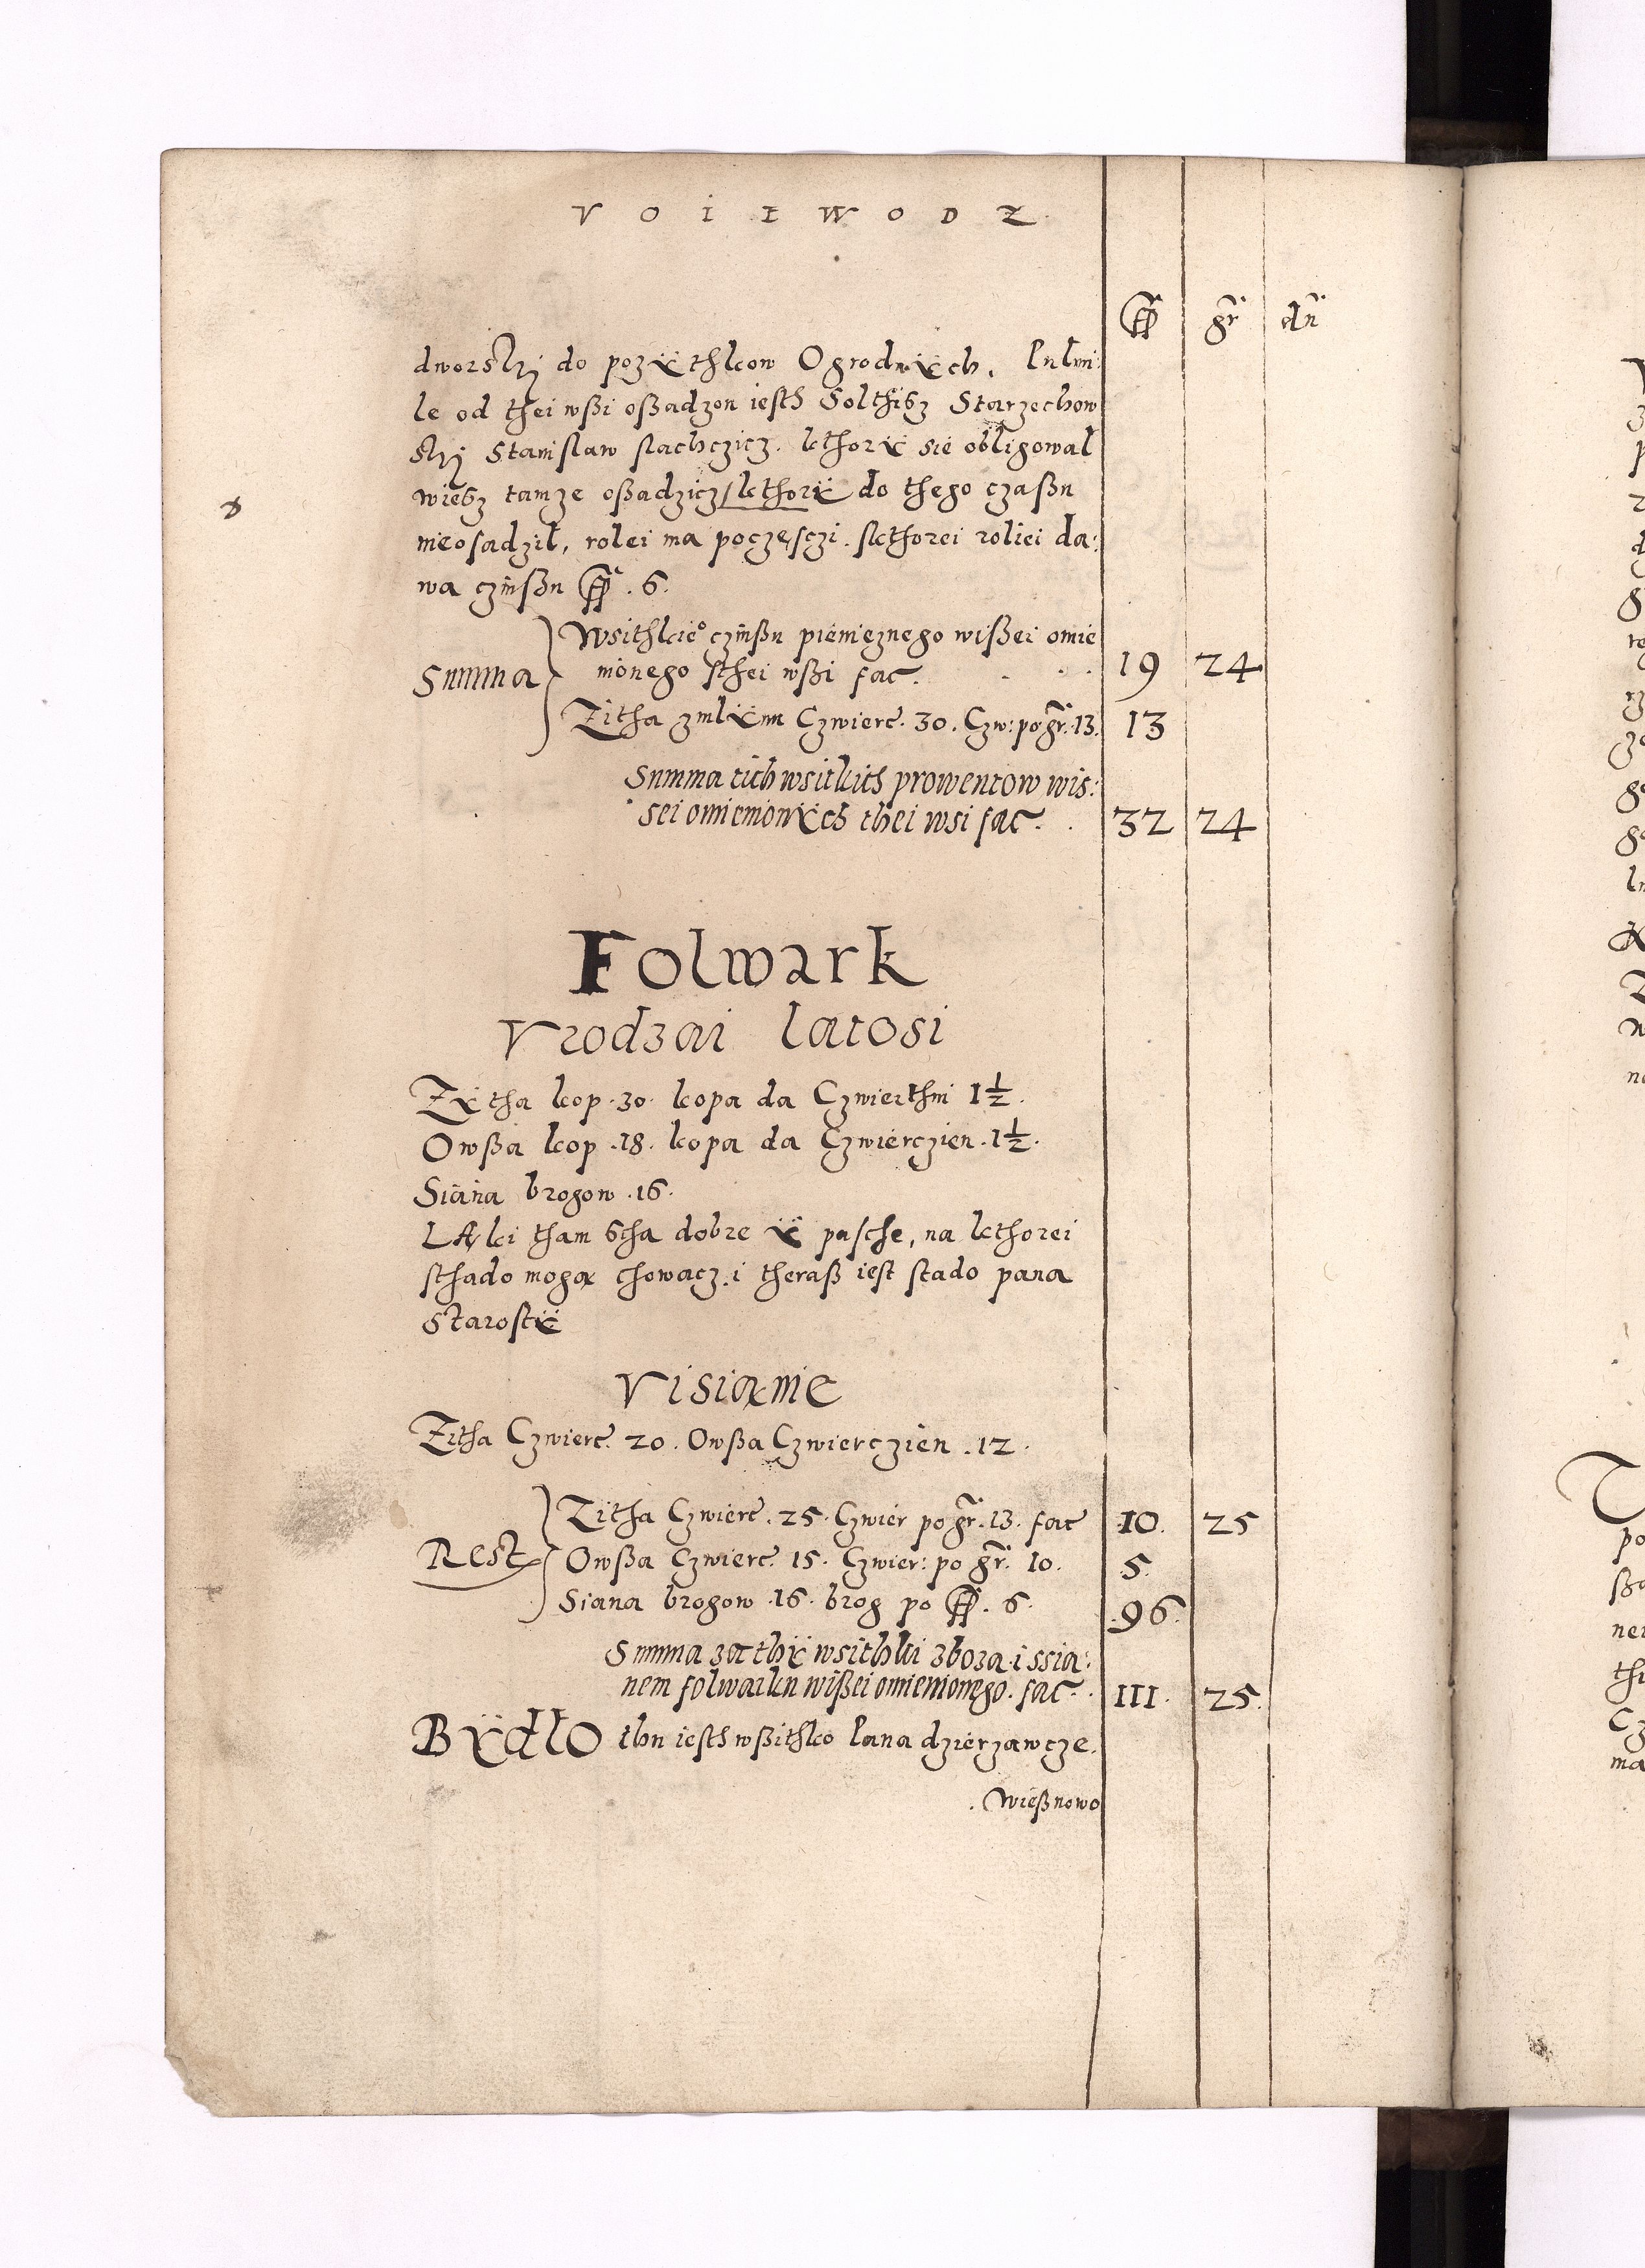 VOIEWODZ
fl gr dn
dworskÿ do pozÿthkow Ogrodnÿch. Pulmi:
le od thei wßi oßadzon iesth Solthisz Starzechow
skÿ Stanislaw slachczicz. kthorÿ sie obligowal
wiesz tamze oßadzicz, kthorÿ do thego czaßu
nieosadzil, rolei ma poczęsczi. skthorei roliei da:
wa czinßu fl. 6.
Summa
Wsithkie° czinßu pienieznego wißei omie
nionego sthei wßi fac. 19 24
Zitha zmlÿnu Czwierc. 30. Czw: po gr. 13. 13
Summa tich wsitkich prowentow wis:
sei omienionÿch thei wsi fac. 32 24
Folwark
Vrodzai latosi
Zÿtha kop. 30. kopa da Czwierthni 1½.
Owßa kop. 18. kopa da Czwierczien. 1½.
Siana brogow. 16.
LĄki tham stha dobre ÿ pusche, na kthorei
sthado mogą chowacz. i theraß iest stado pana
Starostÿ
Visianie
Zitha Czwierc. 20. Owßa Czwierczien. 12.
Rest
Zitha Czwierc. 25. Czwier po gr. 13. fac 10. 25
Owßa Czwierc. 15. Czwier: po gr. 10. 5.
Siana brogow. 16. brog po fl. 6. 96.
Summa za thÿ wsithki zboza i ssia:
nem folwarku wißei omienionego. fac. 111. 25.
BÿdłO thu iesth wßithko Pana dzierzawcze.
Wießnowo